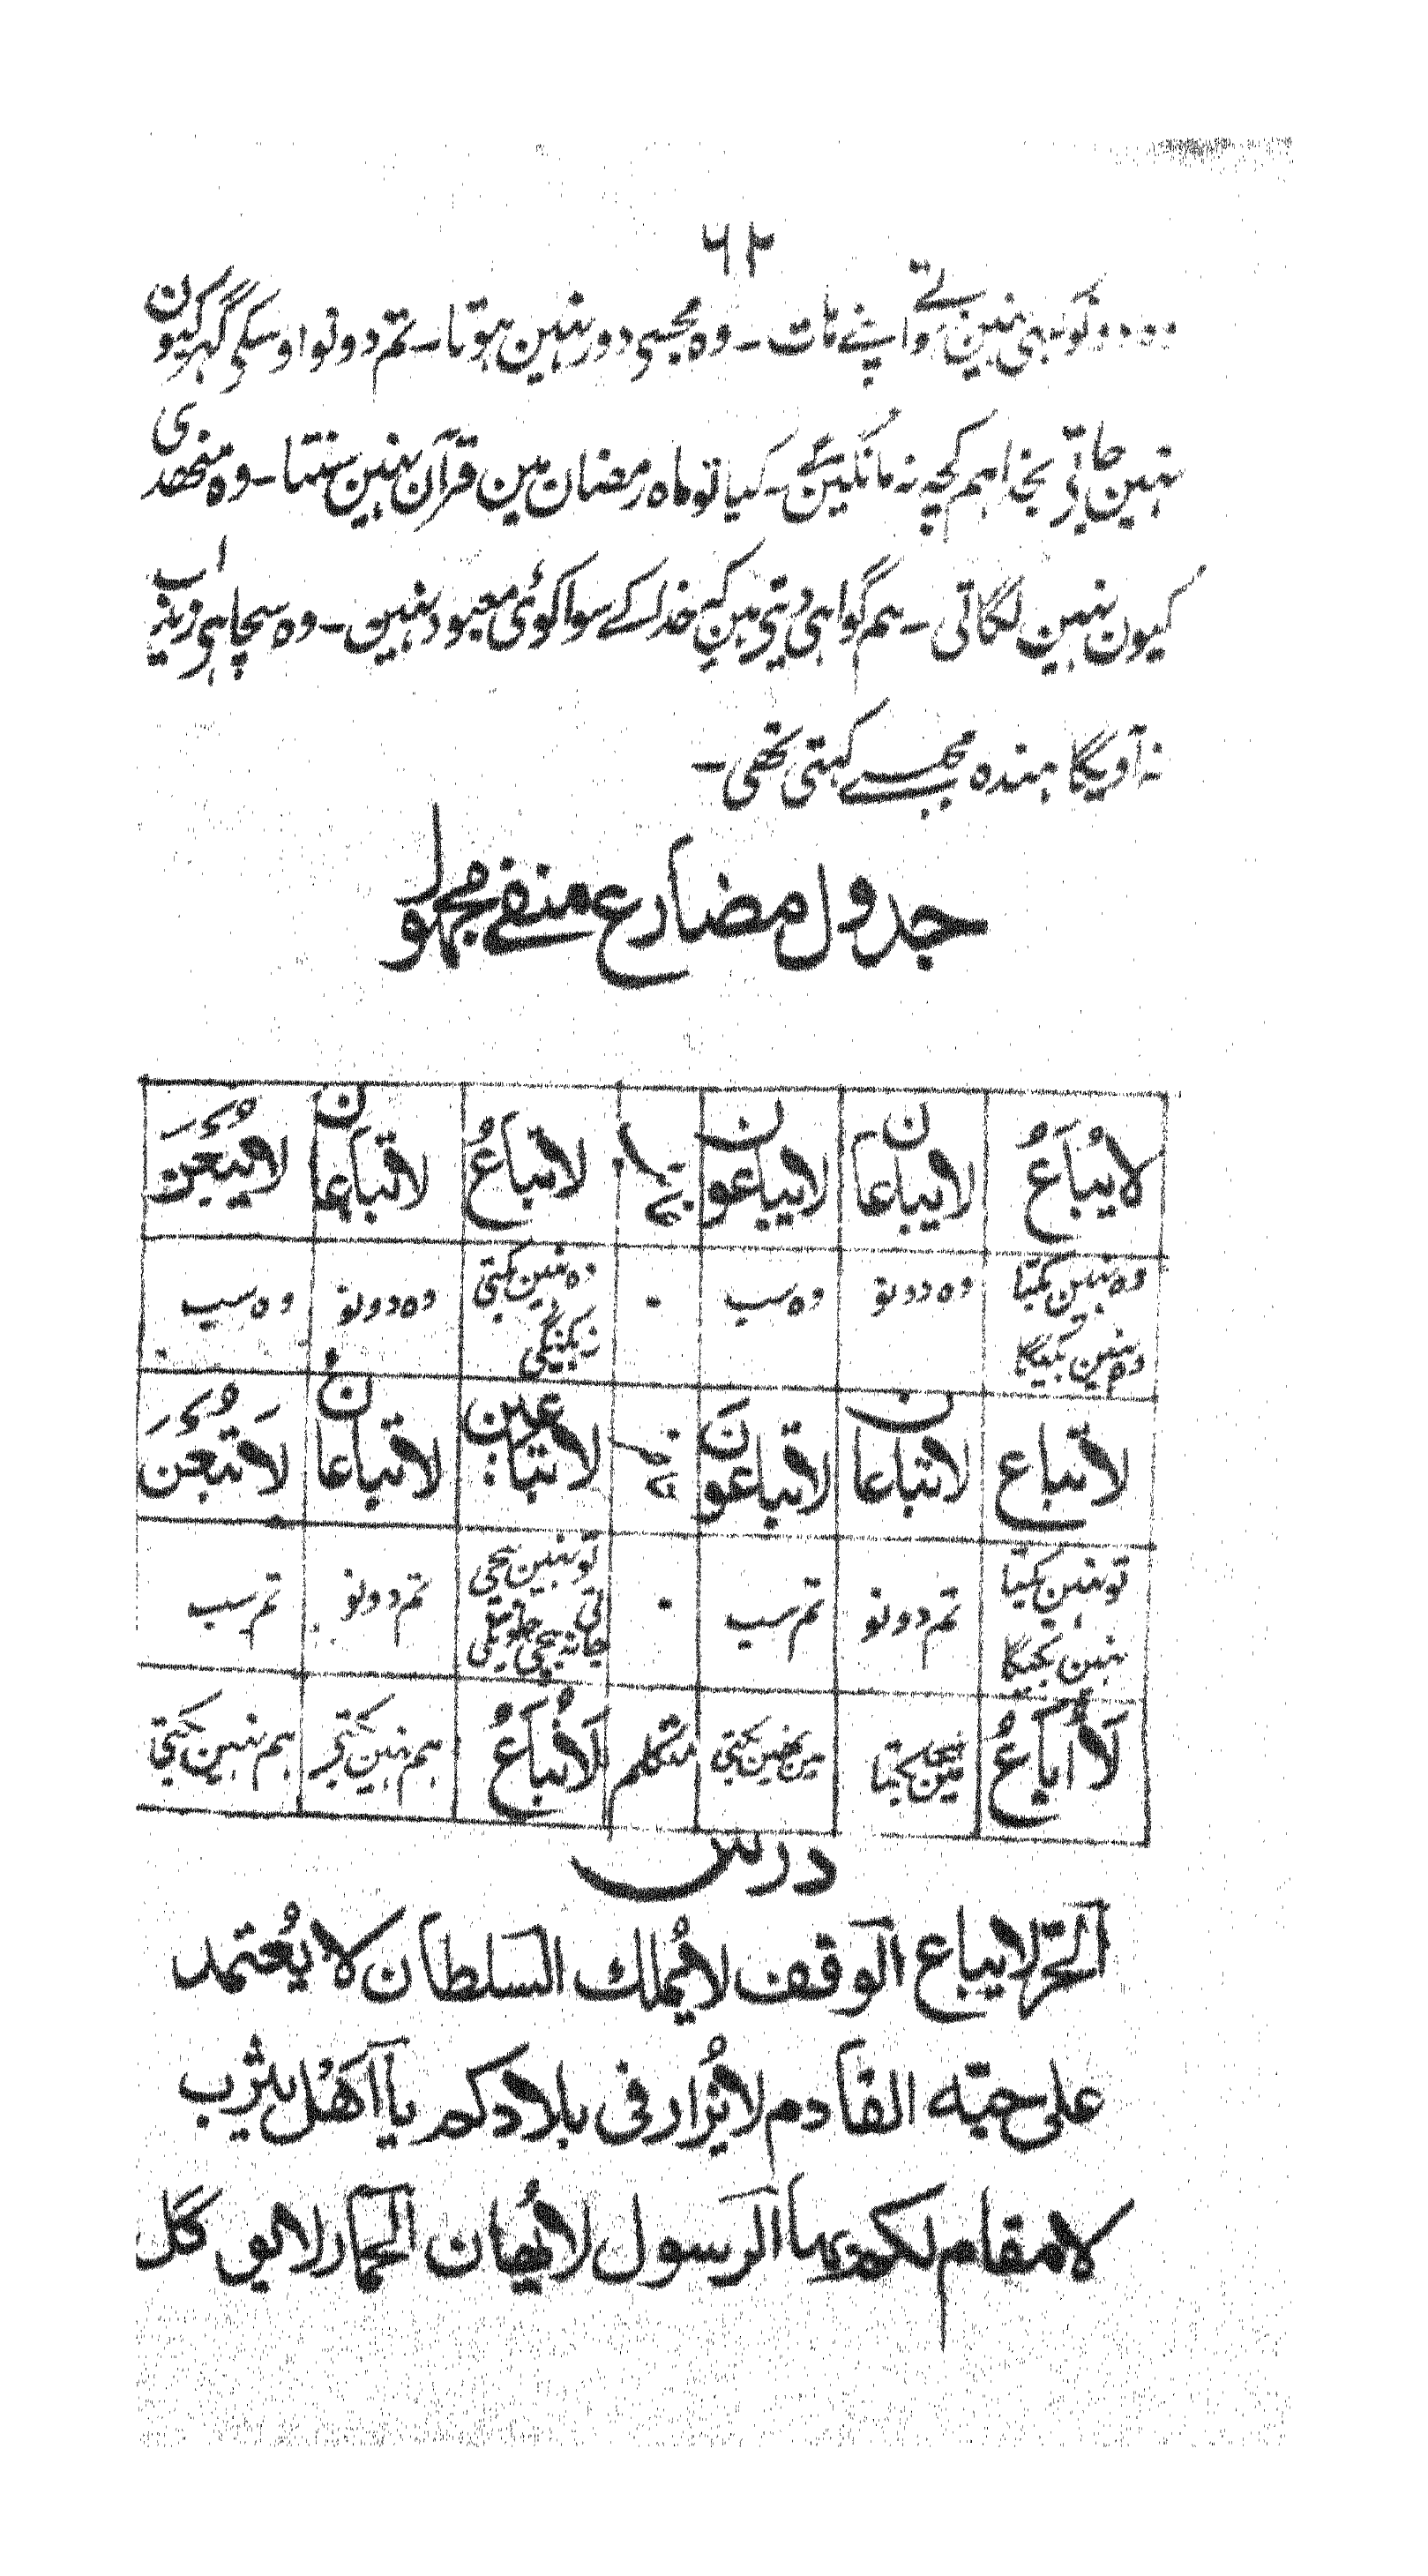 ۶۲
وہ دونو کبھی نہین دھوتے اپنے ہات ۔ وہ مجھسی دور نہین ہوتا ۔ تم دونو اوسکی گھر کیون
نہین جاتی بخدا ہم کچھ نہ مانگین گے ۔ کیا تو ماہ رمضان مین قرآن نہین سنتا ۔ وہ منھدی
کیون نہین لگاتی ۔ ہم گواہی دیتی ہین کہ خدا کے سوا کوئی معبود نہین ۔ وہ سچا ہی زید اب
نہ آویگا ہندہ مجھسے کہتی تھی ۔
جدول مضارع منفے مجہول
لایُباعُ لایباعان لایباعون لاتباعُ لاتباعان لایُبَعنَ
وہ نہین بکتا وہ دونو وہ سب ۰ وہ نہین بکتی وہ دونو وہ سب
وہ نہین بکیگا نہ بکیگی
لاتباع لاتباعان لاتباعونَ لاتباعین لاتباعان لاتُبَعنَ
تو نہین بکتا تم دونو تم سب ۰ تو نہین بیچی جاتی تم دونو تم سب
نہین بکیگا نہ بیچی جاویگی
لااُباعُ مین نہین بکتا مین نہین بکتی متکلم لانُباعُ ہم نہین بکتے ہم نہین بکتی
درس
اَلحرّ لایباع اَلوقف لایُملك اَلسلطان لا یُعتمد
علی حبّه القادم لایُزار فی بلادکم یا اَهْل یثرب
لا مقام لکم عندنا اَلرسول لایُهان اَلحمار لا کُل